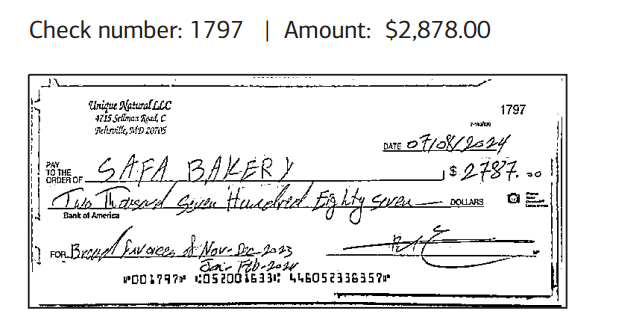 Check number: 1797 | Amount: $2,878.00
Unique Natural LLC
4715 Sellman Road, C
Beltsville, MD 20705
1797
DATE 07/08/2024
PAY TO THE ORDER OF SAFA BAKERY $ 2787.00
Two Thousand Seven Hundred Eighty Seven DOLLARS
Bank of America
FOR Bread Invoices of Nov-Dec-2023
Jan- Feb-2024
⑈001797⑈ ⑆052001633⑆ 446052336357⑈